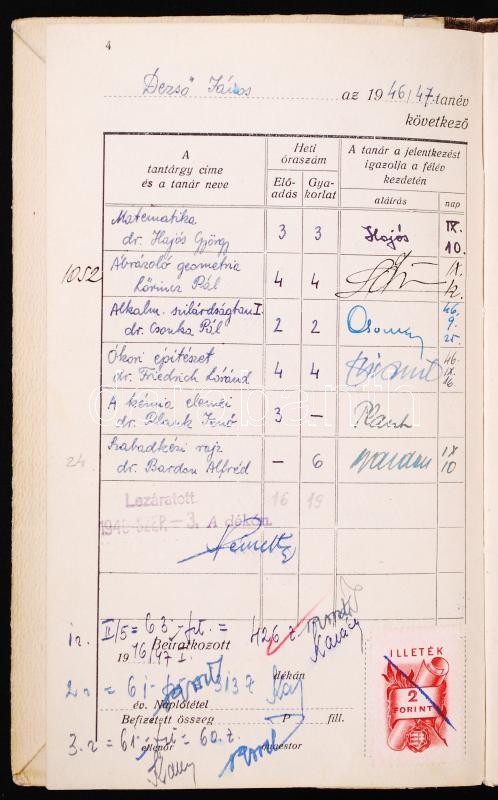 4
Dezső János az 1946/47. tanév
következő
A
tantárgy címe
és a tanár neve
Heti
óraszám
Elő-
adás
Gya-
korlat
A tanár a jelentkezést
igazolja a félév
kezdetén
aláírás
nap
Matematika
dr. Hajós György
3 3 Hajós IX.
10.
1052
Ábrázoló geometria
Lőrincz Pál
4 4 IX.
Alkalm. szilárdságtan I.
dr. Csonka Pál
2 2 Csonka 46.
9.
25.
Ókori építészet
dr. Friedrich Lóránd
4 4 46.
IX.
16.
A kémia elemei
dr. Plank Jenő
3 — Plank
24
Szabadkézi rajz
dr. Bardon Alfréd
— 6 Bardon IX
10
Lezáratott 16 19
1946 SZEP. — 3. A dékán
Németh
1 r. II/5 = 63.- ft. = 426 z.
Beiratkozott
1946/47 I.
dékán
2 r = 61.- 313 z
év. Naplótétel
Befizetett összeg P fill.
3. r = 61.- ft = 60. z.
ellenőr quaestor
ILLETÉK
2
FORINT